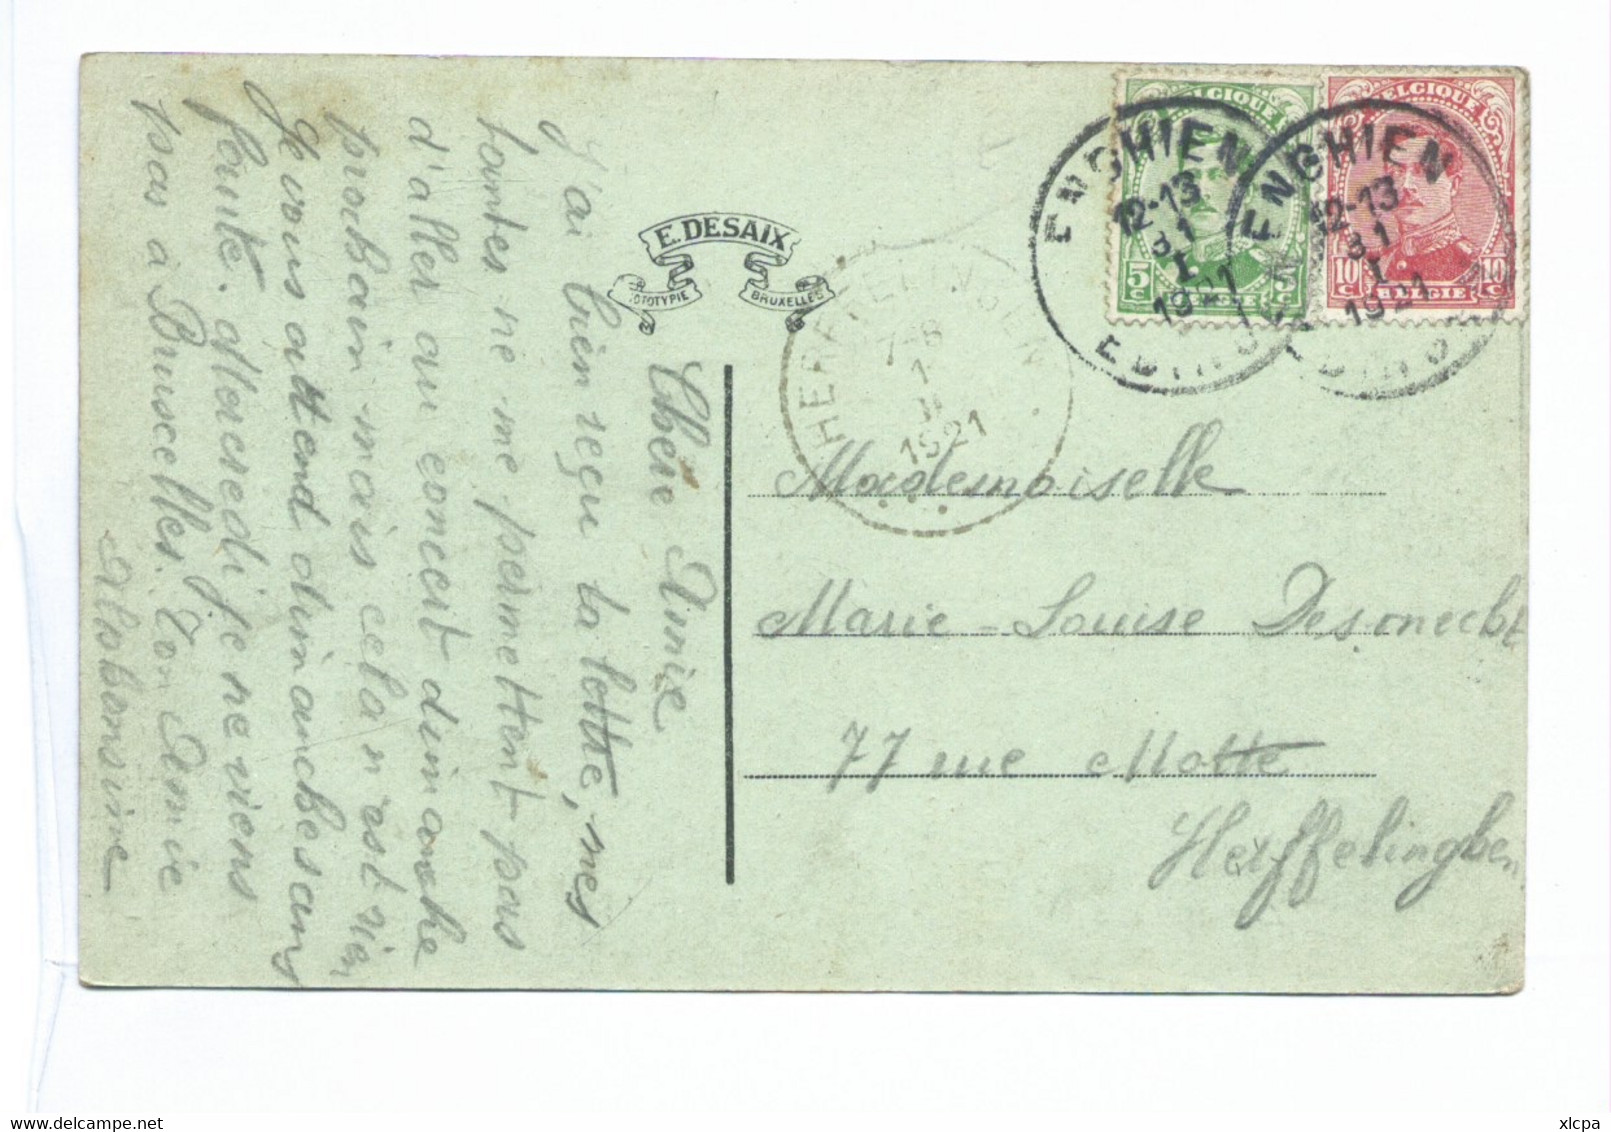 E. DESAIX
BRUXELLES
BELGIQUE
BELGIQUE
5 C
10 C
10 C
BELGIE
BELGIE
ENGHIEN
12-13
31
I
1921
EDINGEN
ENGHIEN
12-13
31
I
1921
7-8
1
II
1921
Chère Amie
J'ai bien reçu ta lettre, mes
tantes ne me permettent pas
d'aller au concert dimanche
prochain mais cela n'est rien
Je vous attend dimanche sans
faute. Mercredi je ne viens
pas à Bruxelles. Ton Amie
Alphonsine
Mademoiselle
Marie-Louise Desmecht
77 rue Motte
Herffelinghen
delcampe.net
xlcpa